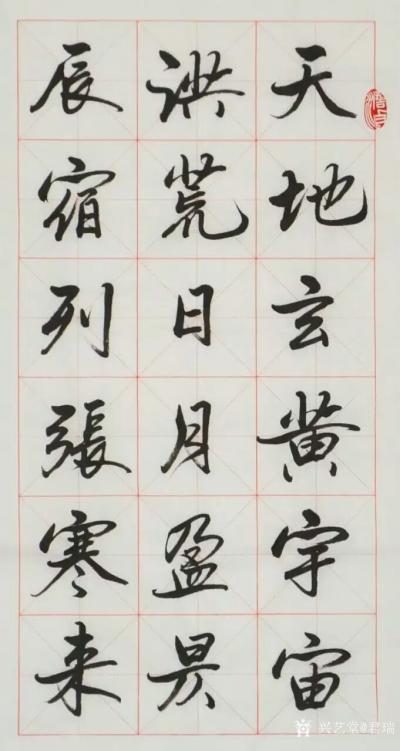 天地玄黄宇宙
洪荒日月盈昃
辰宿列張寒来
兴艺堂@君瑞